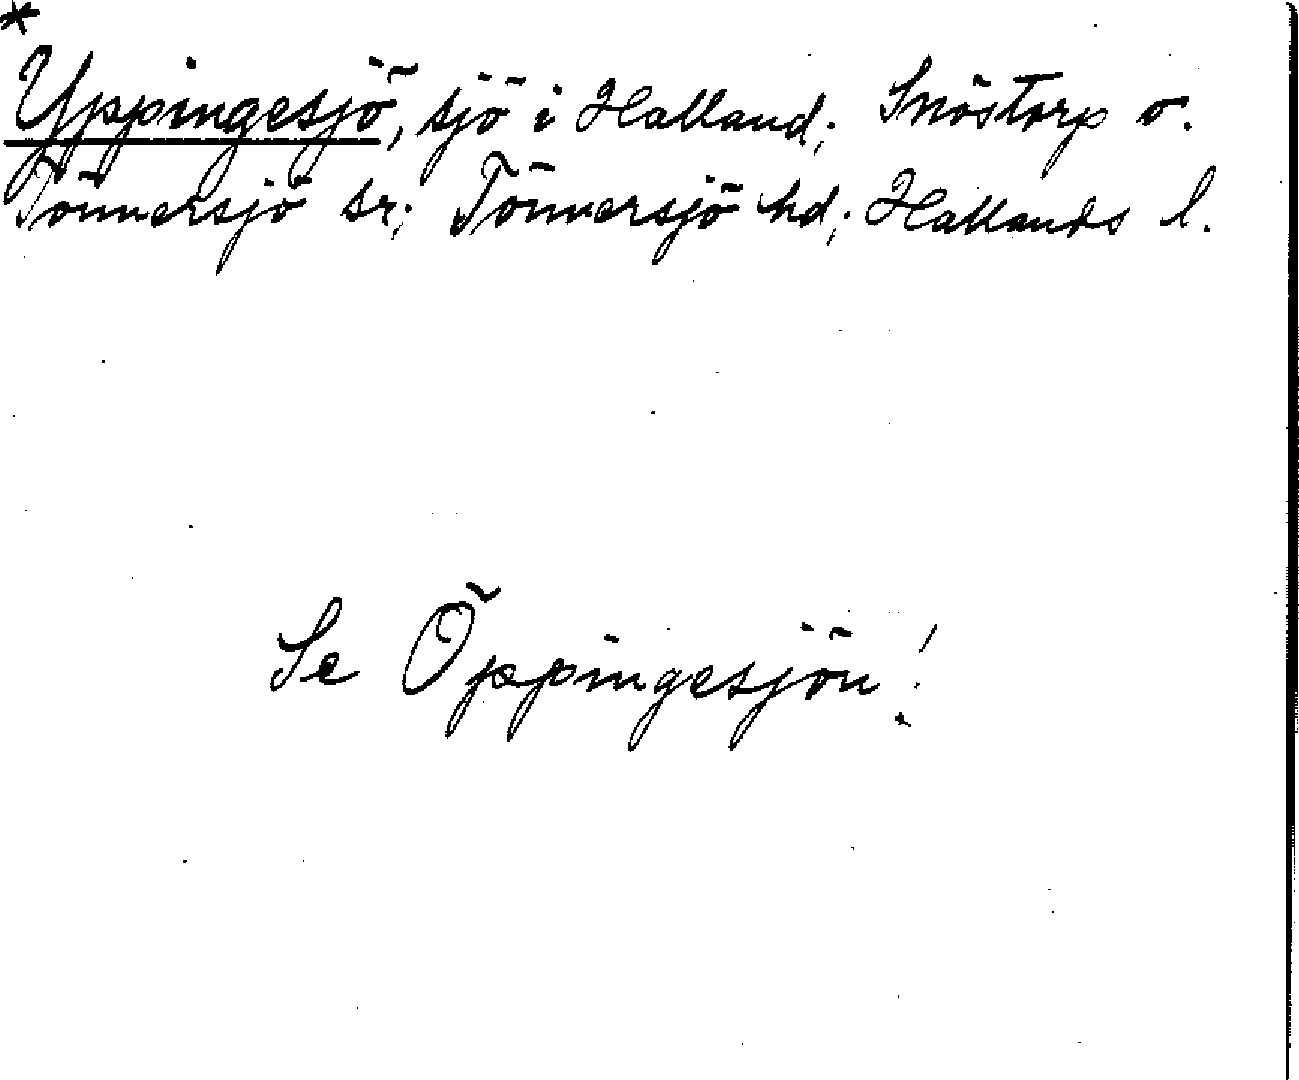 *
Yppingesjö, sjö i Halland; Snöstorp o.
Tönnersjö sr; Tönnersjö hd; Hallands l.
Se Öppingesjön!